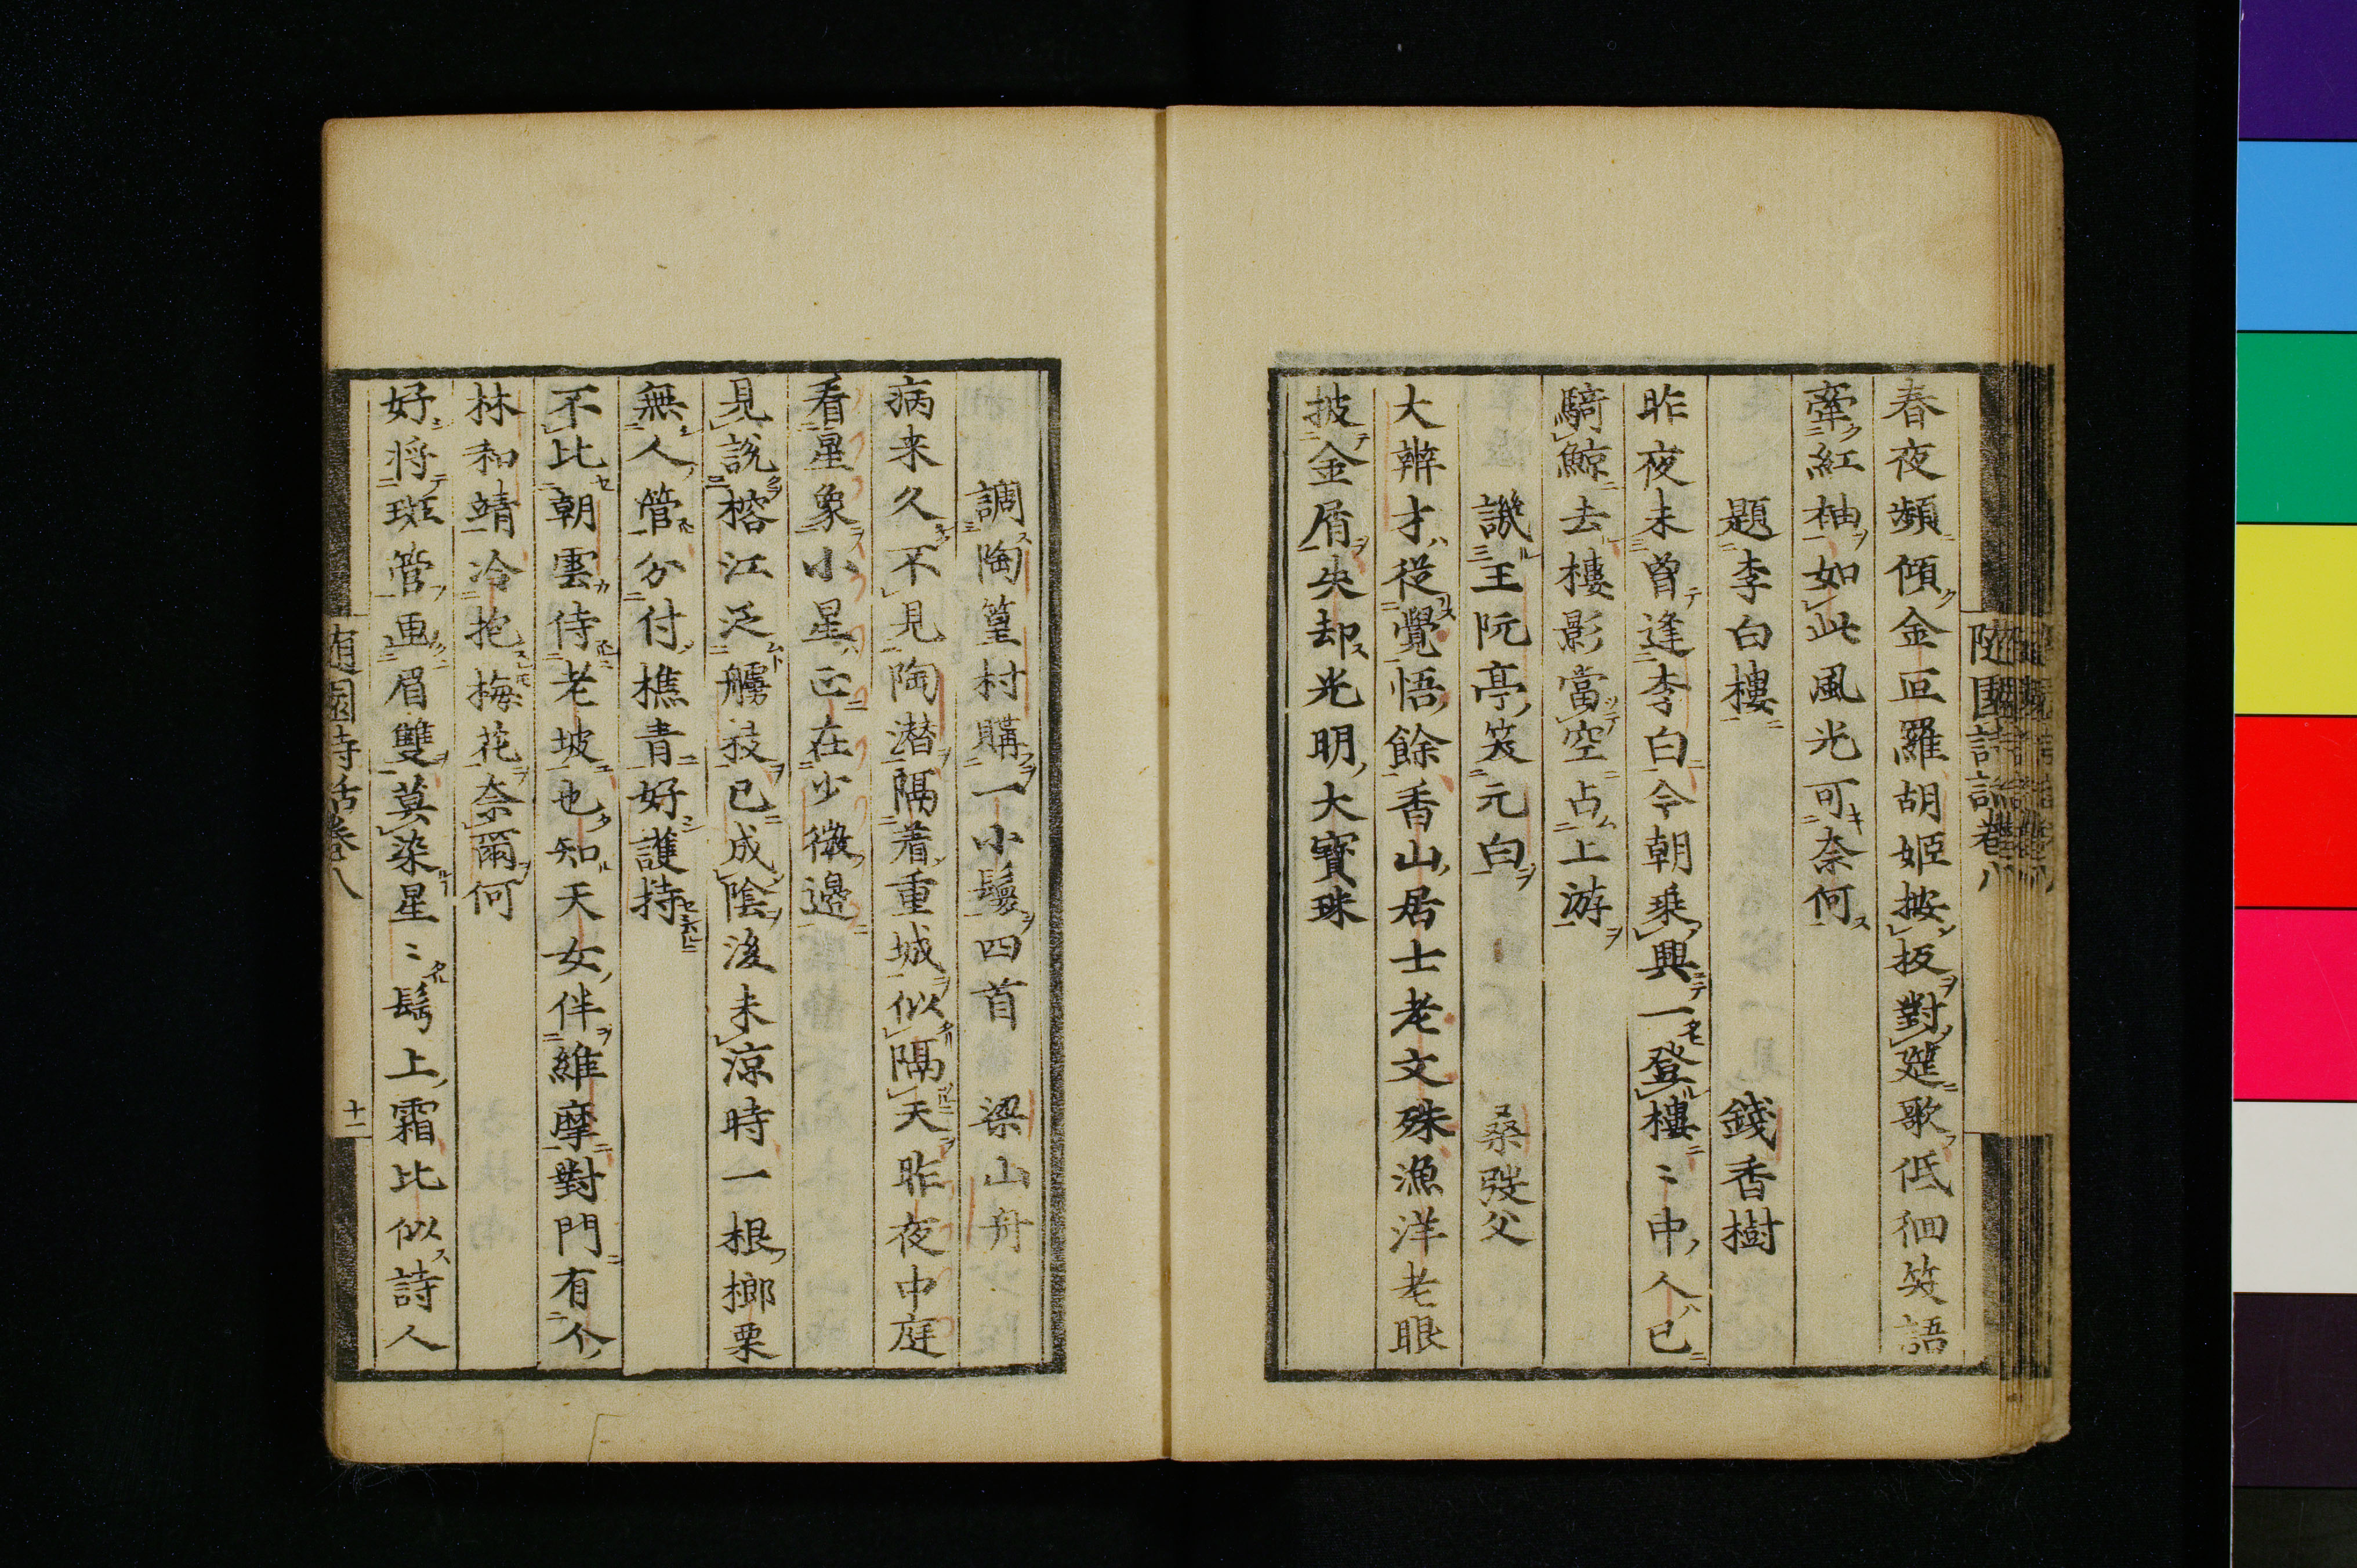 隨園詩話卷八
春夜頻傾金叵羅胡姬按板對筵歌低徊笑語
牽紅袖如此風光可奈何
題李白樓　錢香樹
昨夜未曽逢李白今朝乗興一登樓〻中人已
騎鯨去樓影當空占上游
譏王阮亭笑元白　桑弢父
大辨才從覺悟餘香山居士老文殊漁洋老眼
披金屑失却光明大寶珠
調陶篁村購一小鬟四首　梁山舟
病来久不見陶潜隔着重城似隔天昨夜中庭
看星象小星正在少微邊
見說榕江泛艣枝已成陰後未涼時一根榔栗
無人管分付樵青好護持
不比朝雲侍老坡也知天女伴維摩對門有个
林和靖冷抱梅花奈爾何
好将斑管画眉雙莫染星〻髩上霜比似詩人
隨園詩話卷八　十二